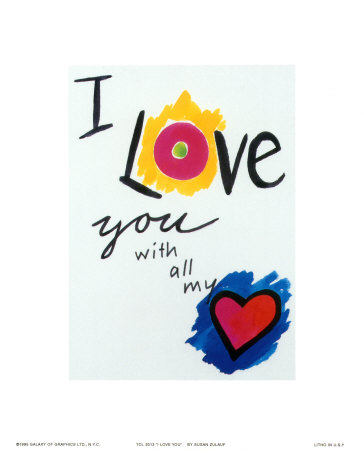 I
LOve
you
with
all
my
©1995 GALAXY OF GRAPHICS LTD., N.Y.C. TCL 3013 "I LOVE YOU" BY SUSAN ZULAUF LITHO IN U.S.A